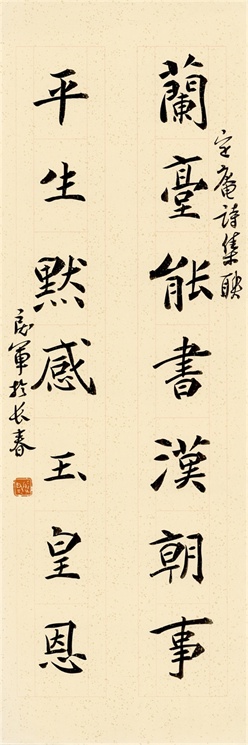 定庵詩集聯
蘭臺能書漢朝事
平生默感玉皇恩
良軍於長春